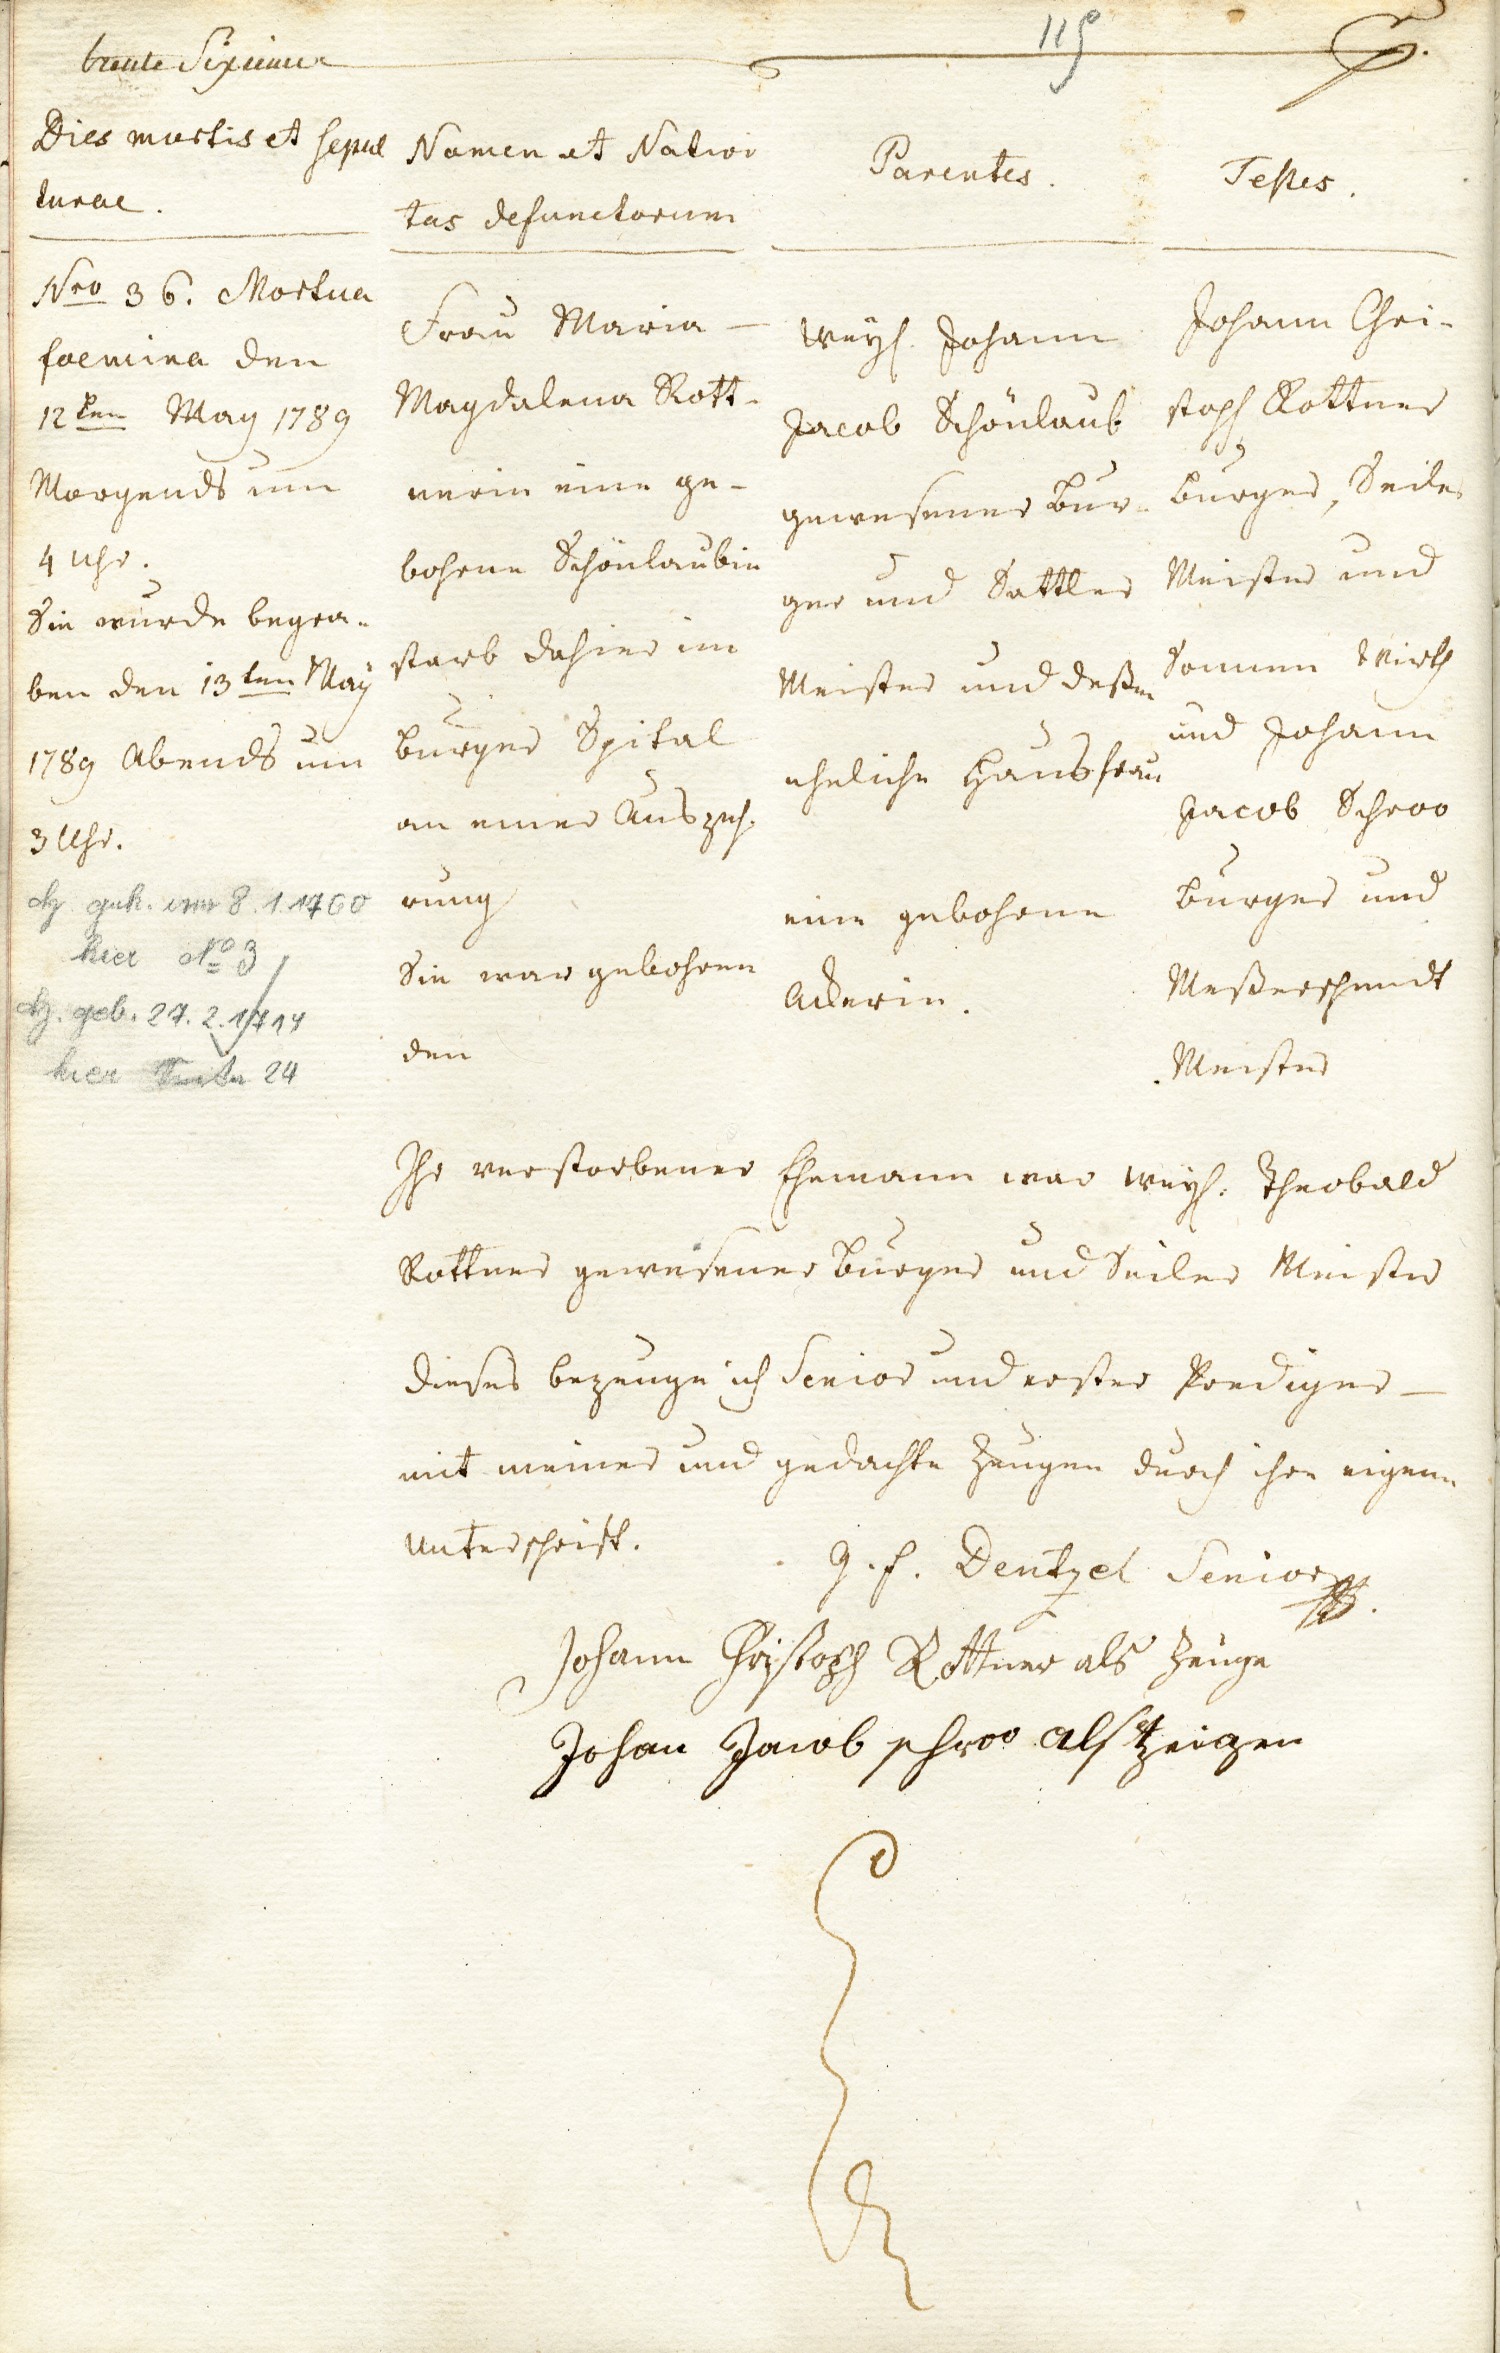 trente Sixieme
115
Dies mortis et sepul
turae.
Nomen et Nativi
tas defunctorum
Parentes.
Testes.
Nro 36. Mortua
foemina den
12ten May 1789
Morgends um
4 Uhr.
Sie wurde begra-
ben den 13ten May
1789 Abends um
3 Uhr.
hier No 3
geb. 27.2.1714
hier Seite 24
Frau Maria
Magdalena Rott-
nerin eine ge-
bohrne Schönlaubin
starb dahier im
Burger Spital
an einer Auszeh-
rung
Sie war gebohren
den
weyl. Johann
Jacob Schönlaub
gewesener Bur-
ger und Sattler
Meister und deßen
eheliche Hausfrau
eine gebohrne
Ackerin.
Johann Chri-
stoph Rottner
Burger, Seiler
Meister und
Sonnen Wirth
und Johann
Jacob Schroo
Burger und
Meßerschmidt
Meister
Ihr verstorbener Ehemann war weyl. Theobald
Rottner gewesener Burger und Seiler Meister
dieses bezeuge ich Senior und erster Prediger
mit meiner und gedachte Zeugen durch ihre eigene
Unterschrift.
J. F. Dentzel Senior
Johann Christoph Rottner als Zeuge
Johan Jacob schroo als tzeigen